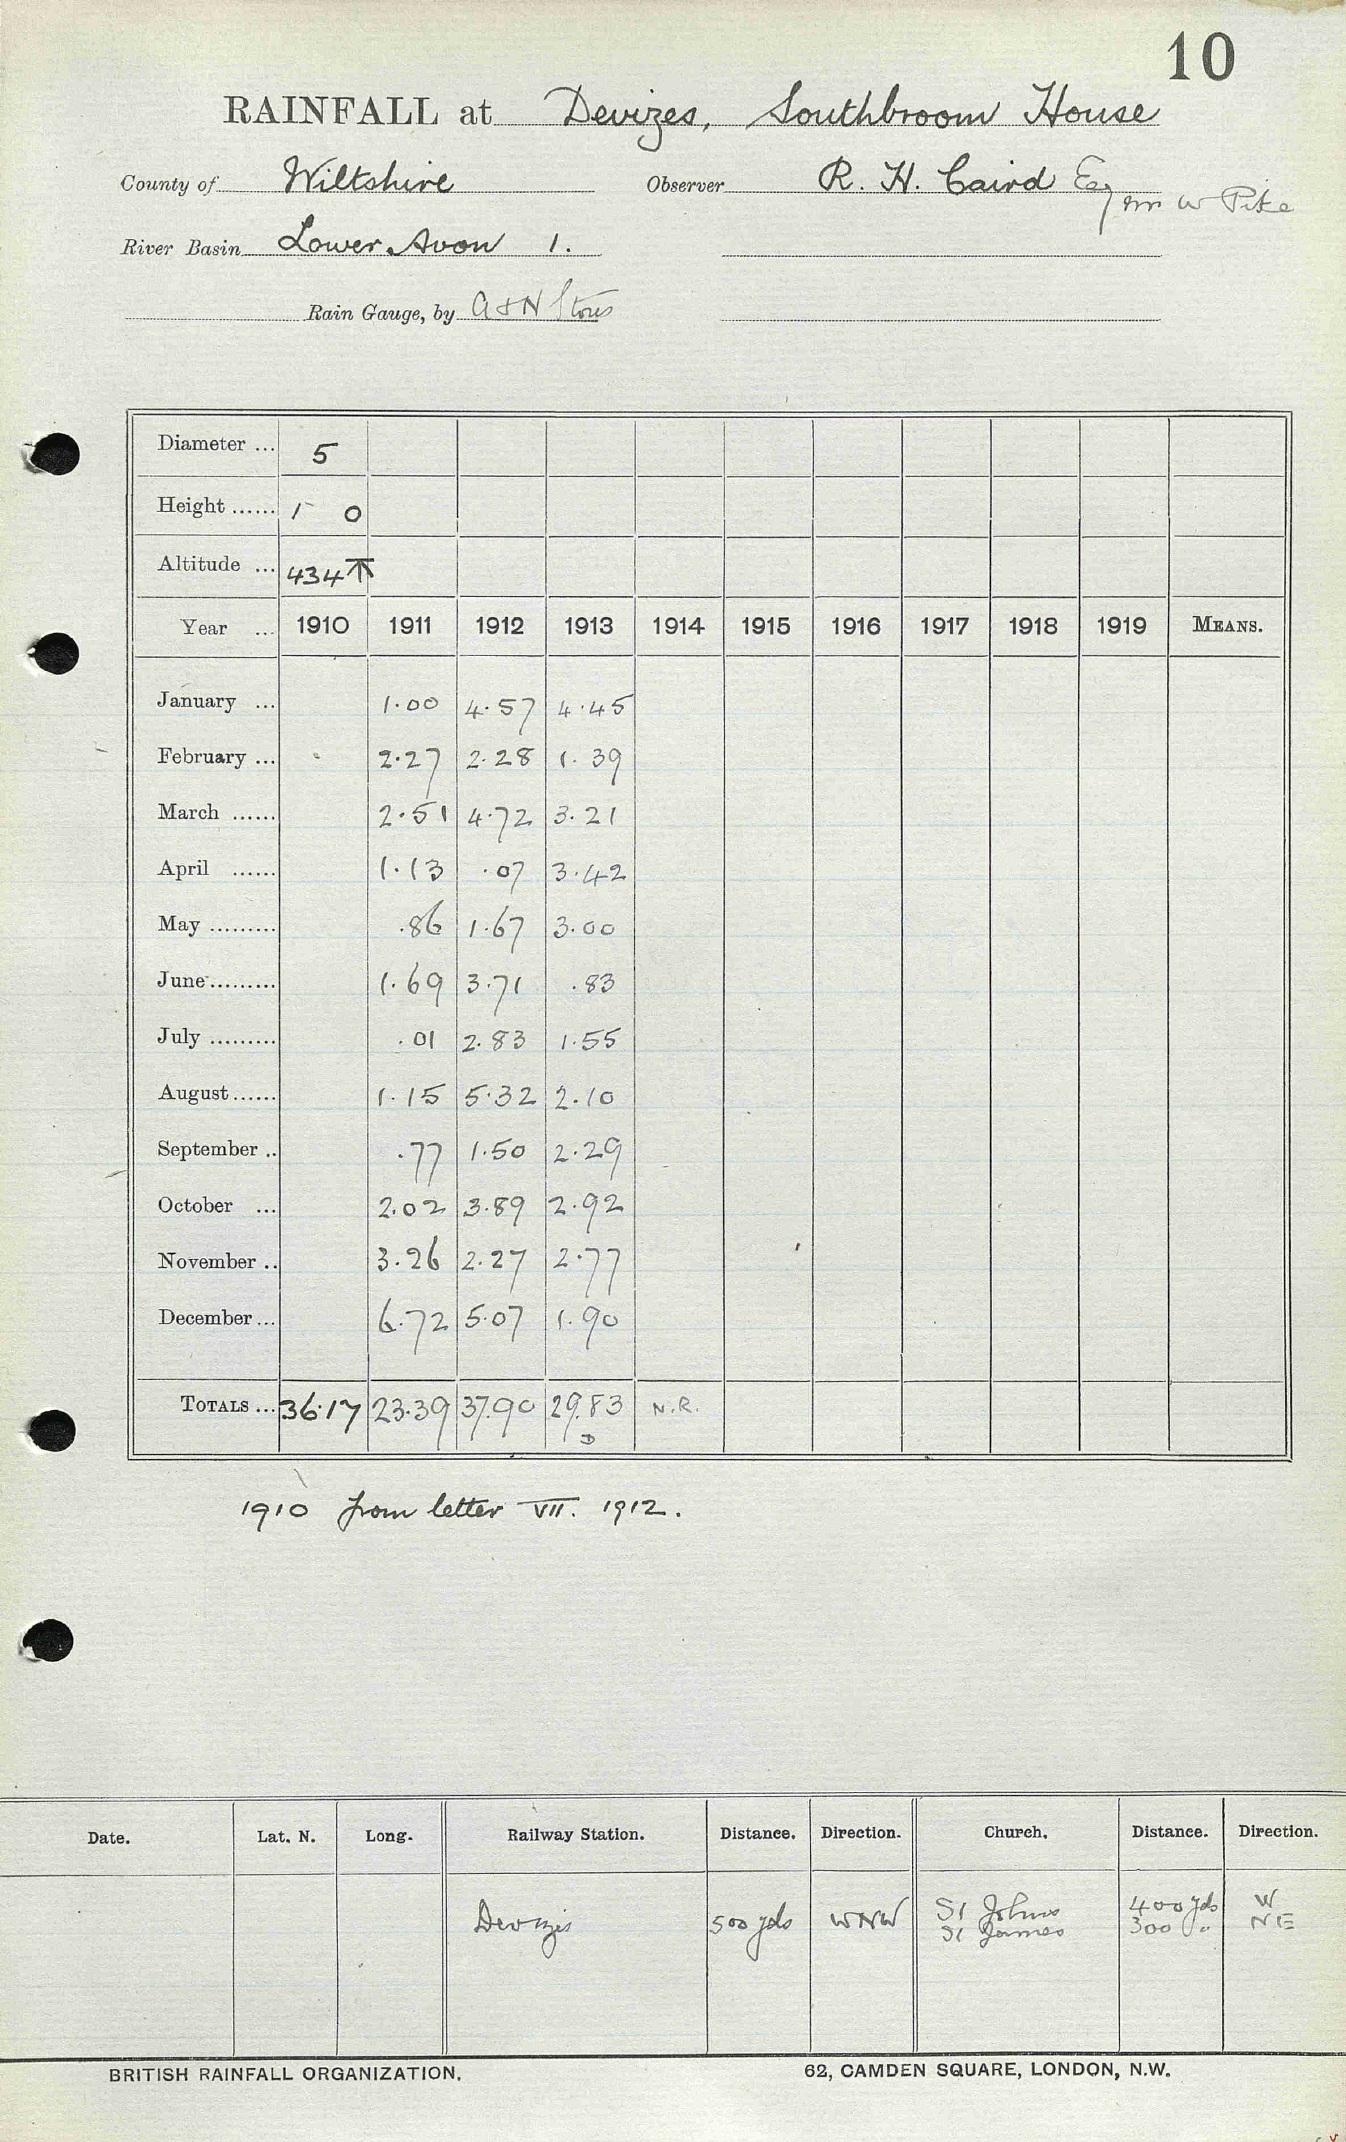 10
RAINFALL at Devizes, Southbroom House
County of Wiltshire Observer R. H. Caird Esq
W Pike
River Basin Lower Avon 1.
Rain Gauge, by A & N Stores
Diameter ... 5
Height ...... 1 0
Altitude ... 434
Year ... 1910 1911 1912 1913 1914 1915 1916 1917 1918 1919 MEANS.
January ... 1.00 4.57 4.45
February ... 2.27 2.28 1.39
March ...... 2.51 4.72 3.21
April ...... 1.13 .07 3.42
May ......... .86 1.67 3.00
June ......... 1.69 3.71 .83
July ......... .01 2.83 1.55
August ...... 1.15 5.32 2.10
September .. .77 1.50 2.29
October ... 2.02 3.89 2.92
November .. 3.26 2.27 2.77
December ... 6.72 5.07 1.90
TOTALS ... 36.17 23.39 37.90 29.83 N.R.
D
1910 from letter VII. 1912.
Date. Lat. N. Long. Railway Station. Distance. Direction. Church. Distance. Direction.
Devizes 500 yds WNW St Johns 400 yds W
St James 300 " NE
BRITISH RAINFALL ORGANIZATION. 62, CAMDEN SQUARE, LONDON, N.W.